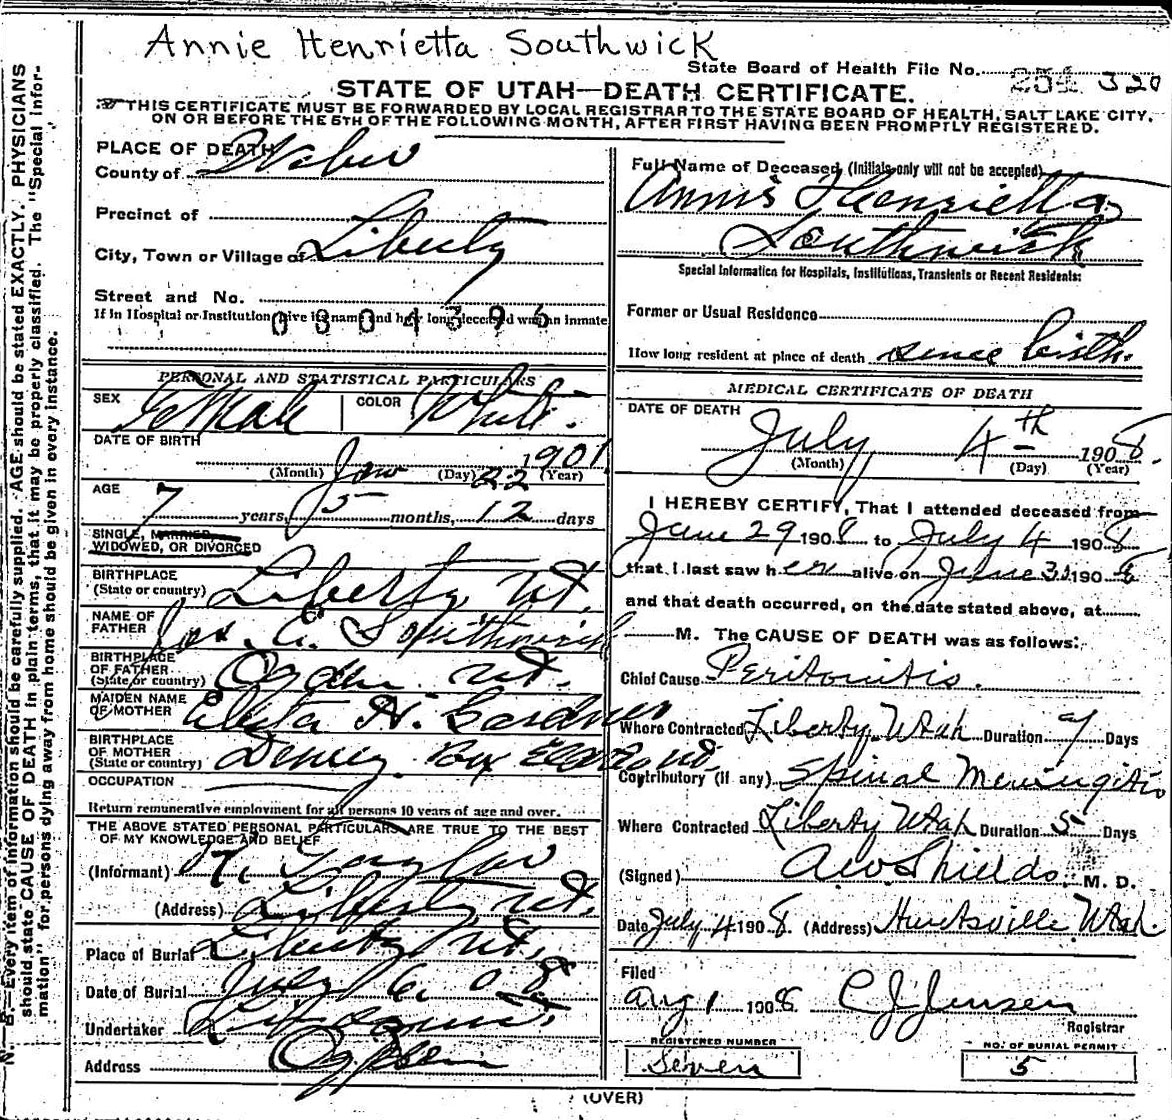 Annie Henrietta Southwick
State Board of Health File No. 320
STATE OF UTAH—DEATH CERTIFICATE.
THIS CERTIFICATE MUST BE FORWARDED BY LOCAL REGISTRAR TO THE STATE BOARD OF HEALTH, SALT LAKE CITY,
ON OR BEFORE THE 5TH OF THE FOLLOWING MONTH, AFTER FIRST HAVING BEEN PROMPTLY REGISTERED.
N. B.—Every item of information should be carefully supplied. AGE should be stated EXACTLY. PHYSICIANS
should state CAUSE OF DEATH in plain terms, that it may be properly classified. The "Special Infor-
mation" for persons dying away from home should be given in every instance.
PLACE OF DEATH
County of Weber
Precinct of
City, Town or Village of Liberty
Street and No.
If in Hospital or Institution give its name and how long deceased was an inmate
0304396
PERSONAL AND STATISTICAL PARTICULARS
SEX Female COLOR White.
DATE OF BIRTH
(Month) Jan (Day) 22 (Year) 1901
AGE
7 years, 5 months, 12 days
SINGLE, MARRIED,
WIDOWED, OR DIVORCED
BIRTHPLACE
(State or country) Liberty Ut.
NAME OF
FATHER Jos. A. Southwick
BIRTHPLACE
OF FATHER
(State or country) Ogden Ut.
MAIDEN NAME
OF MOTHER H. Gardner
BIRTHPLACE
OF MOTHER
(State or country) Box Elder Co Ut.
OCCUPATION
Return remunerative employment for all persons 10 years of age and over.
THE ABOVE STATED PERSONAL PARTICULARS ARE TRUE TO THE BEST
OF MY KNOWLEDGE AND BELIEF
(Informant) Taylor
(Address) Liberty Ut.
Place of Burial Liberty Ut.
Date of Burial July 6. 08
Undertaker
Address Ogden
Full Name of Deceased (Initials only will not be accepted)
Annie Henrietta
Southwick
Special Information for Hospitals, Institutions, Transients or Recent Residents:
Former or Usual Residence
How long resident at place of death since birth.
MEDICAL CERTIFICATE OF DEATH
DATE OF DEATH
July 4th 1908.
(Month) (Day) (Year)
I HEREBY CERTIFY, That I attended deceased from
June 29 1908 to July 4 1908
that I last saw her alive on June 30 1908
and that death occurred, on the date stated above, at
M. The CAUSE OF DEATH was as follows:
Chief Cause Peritonitis.
Where Contracted Liberty Utah Duration 9 Days
Contributory (if any) Spinal Meningitis
Where Contracted Liberty Utah Duration 5 Days
(Signed) A W Shields, M. D.
Date July 4 1908. (Address) Huntsville Utah
Filed
Aug 1 1908 C J Jensen
Registrar
REGISTERED NUMBER
Seven
NO. OF BURIAL PERMIT
5
(OVER)